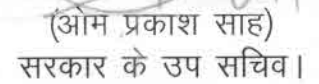 (ओम प्रकाश साह)
सरकार के उप सचिव।